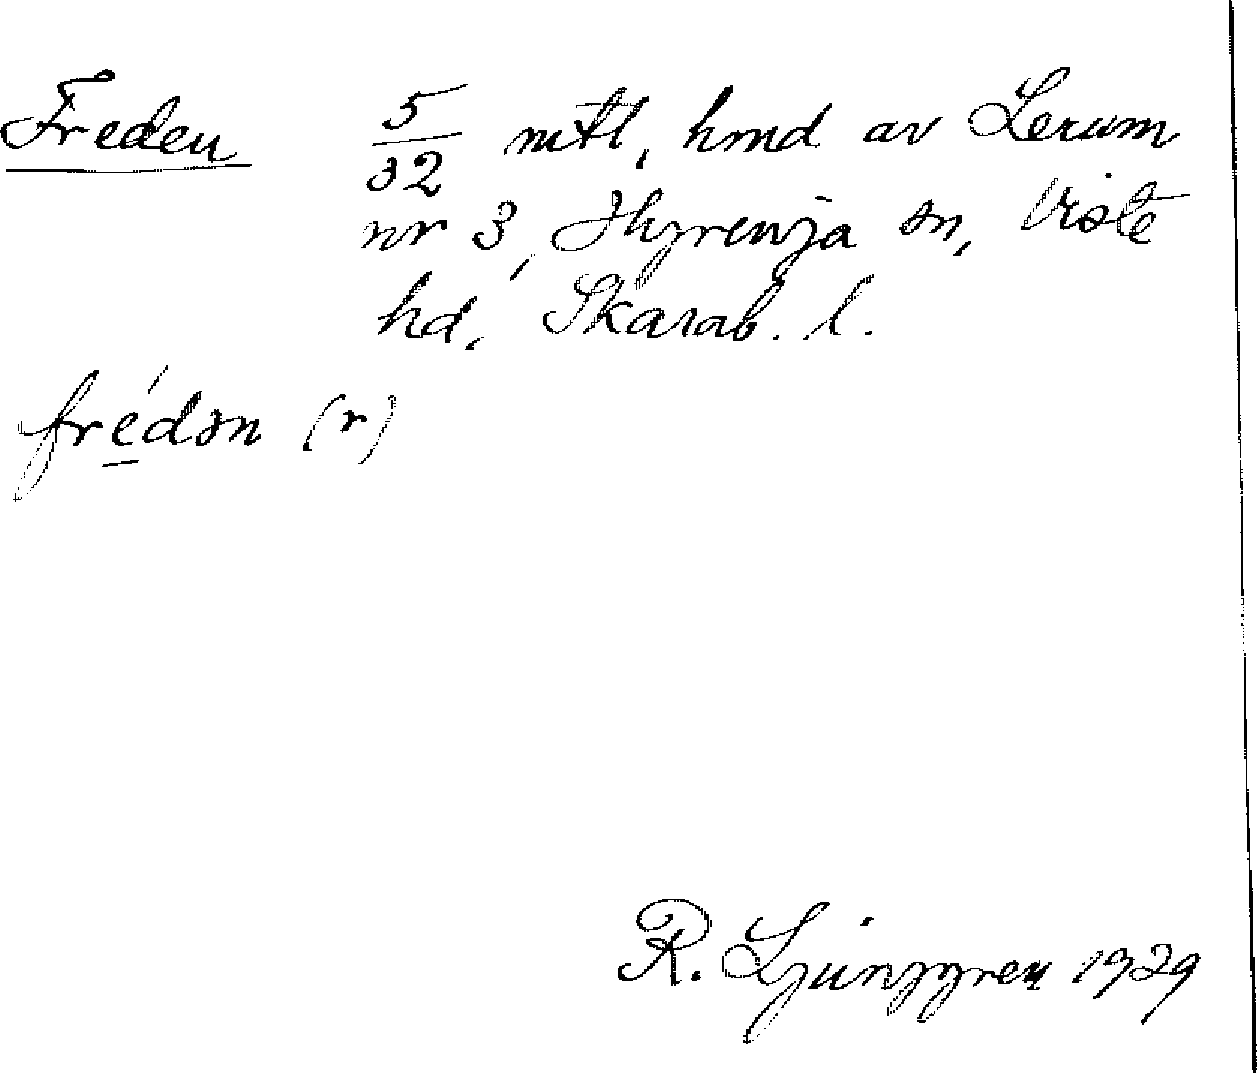 Freden 5/32 mtl, hmd av Lerum
nr 3, Hyrenja sn, Viste
hd, Skarab. l.
frédən (r)
R. Ljunggren 1929